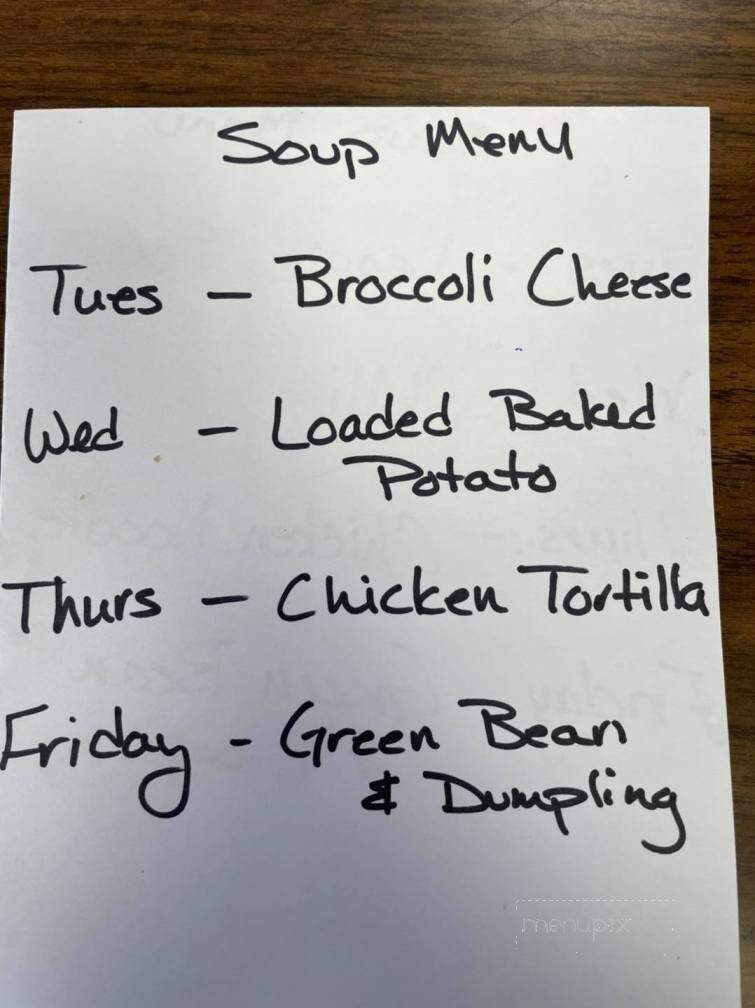 Soup Menu
Tues - Broccoli Cheese
Wed - Loaded Baked
Potato
Thurs - Chicken Tortilla
Friday - Green Bean
& Dumpling
menupix